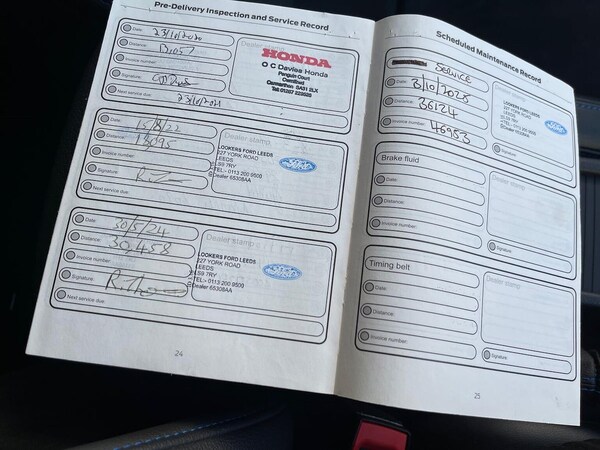 Pre-Delivery Inspection and Service Record
Date: 23/10/2020
Distance:
Invoice number:
Signature:
Next service due: 23/10/2021
Dealer stamp
HONDA
O C Davies Honda
Penguin Court
Carmarthen SA31
Date: 15/8/22
Distance: 18095
Invoice number:
Signature:
Next service due:
Dealer stamp
LOOKERS FORD LEEDS
227 YORK ROAD
LEEDS
LS9 7RY
TEL:- 0113 200 9500
Dealer 65308AA
Ford
Date: 30/5/24
Distance: 30,458
Invoice number:
Signature:
Next service due:
Dealer stamp
LOOKERS FORD LEEDS
227 YORK ROAD
LEEDS
LS9 7RY
TEL:- 0113 200 9500
Dealer 65308AA
Ford
24
Scheduled Maintenance Record
SERVICE
Date: 3/10/2025
Distance: 36124
Invoice number: 46953
LOOKERS FORD LEEDS
227 YORK ROAD
LEEDS
Ford
Signature:
Brake fluid
Date:
Distance:
Invoice number:
Dealer stamp
Signature:
Timing belt
Date:
Distance:
Invoice number:
Dealer stamp
Signature:
25